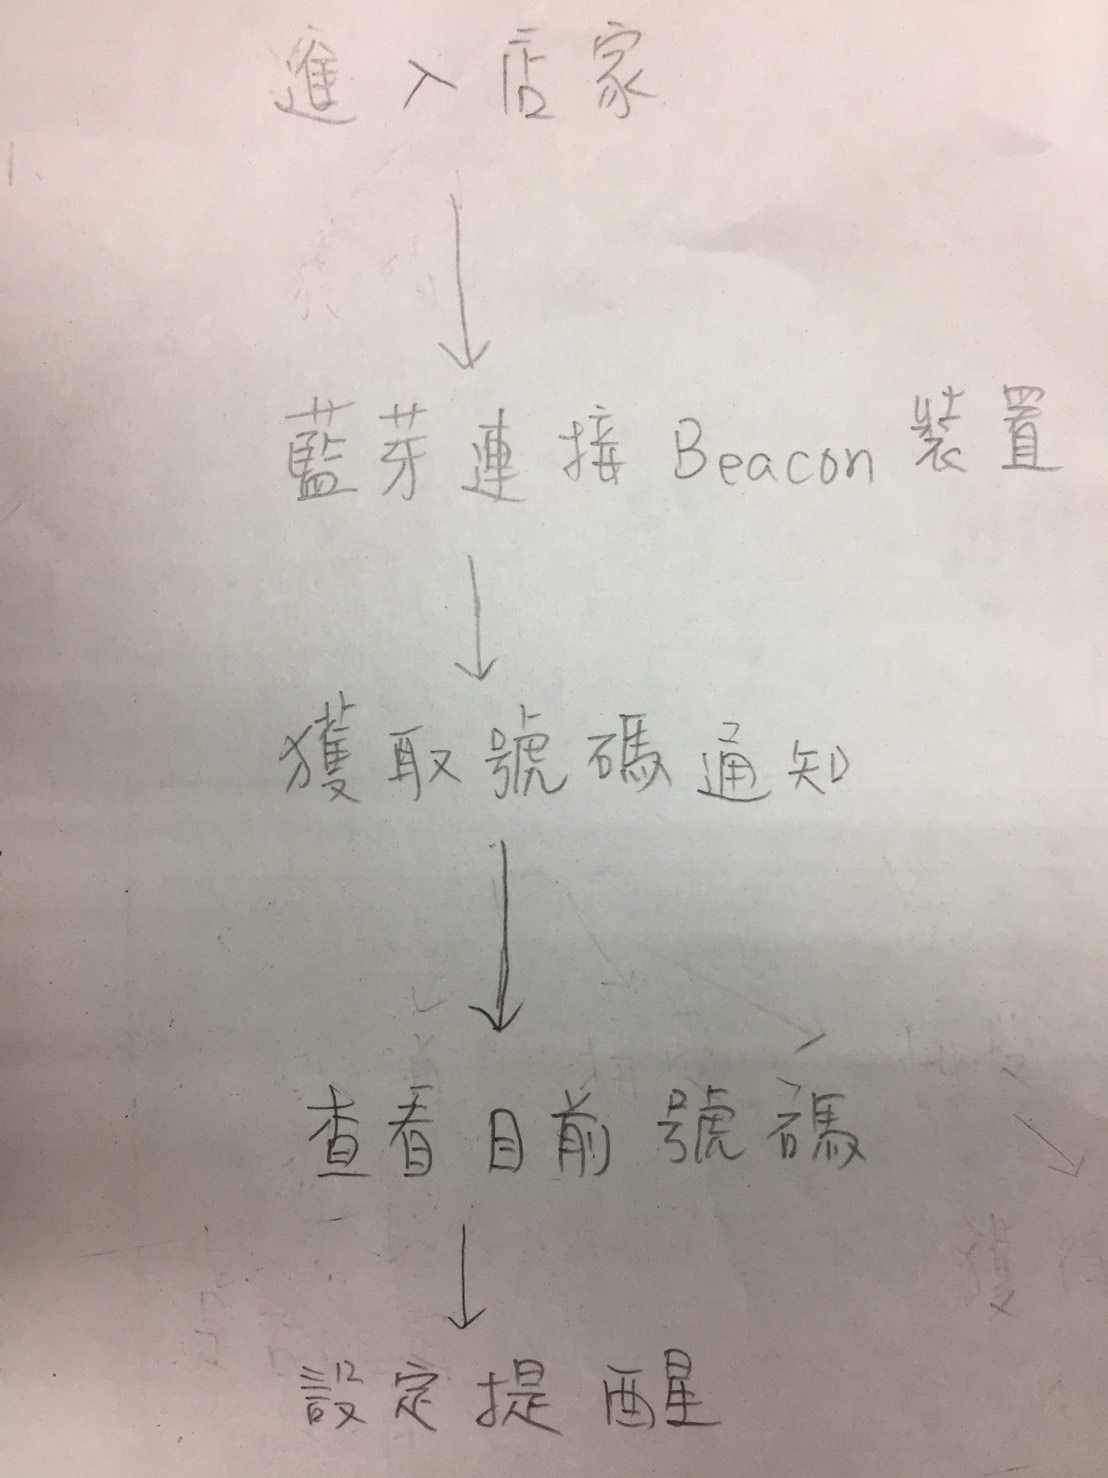 進入店家
藍芽連接Beacon裝置
獲取號碼通知
查看目前號碼
設定提醒